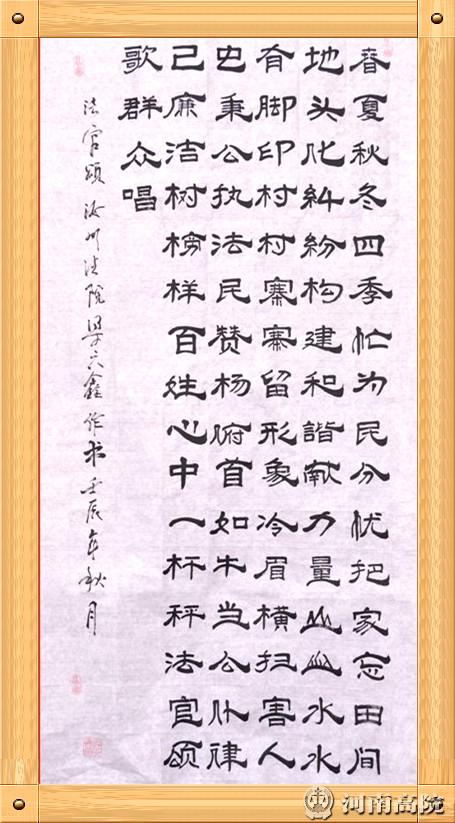 春夏秋冬四季忙为民分忧把家忘田间
地头化糾紛构建和諧献力量山山水水
有脚印村村寨寨留形象冷眉横扫害人
虫秉公执法民赞杨俯首如牛当公仆律
己廉洁树榜样百姓心中一杆秤法官颂
歌群众唱
法官颂 汝州法院梁六鑫作书壬辰年秋月
河南高院